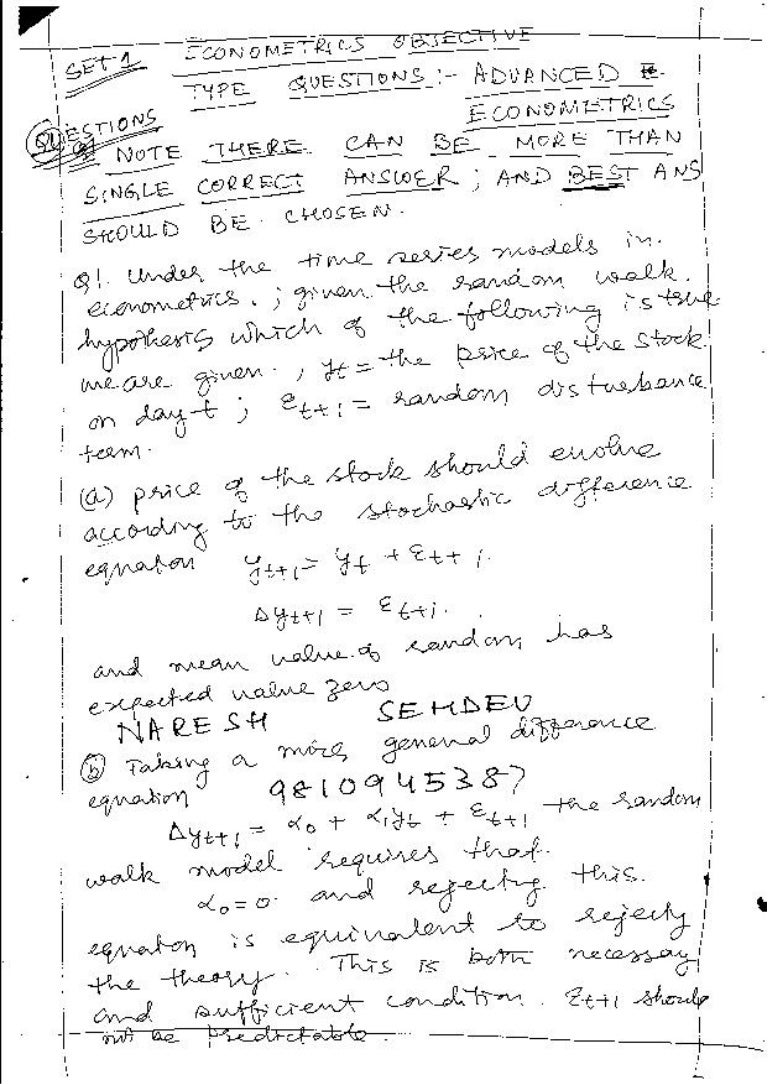 SET 1 ECONOMETRICS OBJECTIVE
TYPE QUESTIONS :- ADVANCED
ECONOMETRICS
QUESTIONS
NOTE THERE CAN BE MORE THAN
SINGLE CORRECT ANSWER ; AND BEST ANS
SHOULD BE CHOSEN.
Q1. Under the time series models in
econometrics. ; given the random walk.
hypothesis which of the following is true
we are given. , yt = the price of the stock
on day t ; εt+1 = random disturbance
term.
(a) price of the stock should evolve
according to the stochastic difference
equation yt+1 = yt + εt+1.
Δyt+1 = εt+1.
and mean value of random has
expected value zero
NARESH SEHDEV
(b) Taking a more general difference
equation 9810945387
Δyt+1 = α0 + α1yt + εt+1 the random
walk model requires that.
α0=0. and rejecting this.
equation is equivalent to rejecting
the theory. This is both necessary
and sufficient condition. εt+1 should
not be predictable.